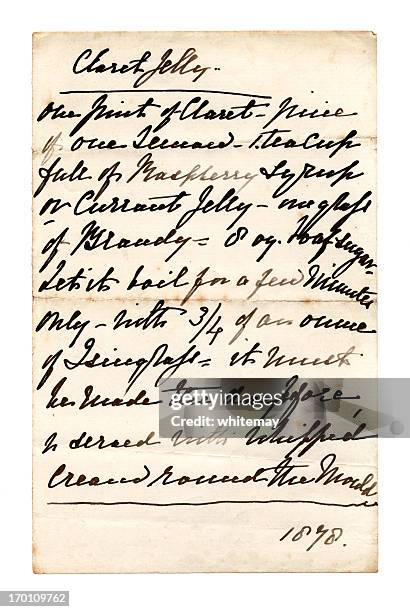 Claret Jelly.
One pint of Claret - juice
of one Lemon - 1 teacup
full of Raspberry Syrup
or Currant Jelly - one glass
of Brandy = 8 oz. loaf sugar -
Let it boil for a few Minutes
only - with 3/4 of an ounce
of Isinglass = it must
be made the day before,
& served with whipped
Cream round the Mould
1878.
gettyimages
Credit: whitemay
170109762